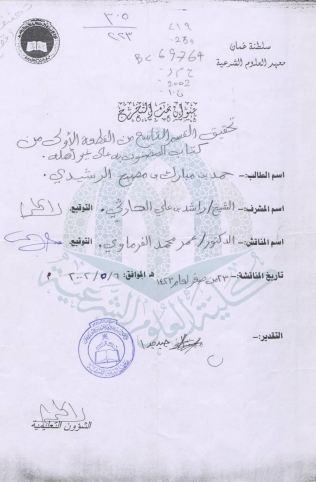 ٣٠٥
٢٢٣
٢١٩
BC 69764
2002
سلطنة عمان
معهد العلوم الشرعية
عنوان بحث التخرج
تحقيق القسم التاسع من القطعة الأولى من
كتاب المضنون به على غير أهله.
اسم الطالب:- حمد بن مبارك بن مصبح الرشيدي.
اسم المشرف:- الشيخ/ راشد بن علي الحارثي. التوقيع
اسم المناقش:- الدكتور/ عمر محمد الفرماوي. التوقيع
تاريخ المناقشة:- ٢٣ من صفر لعام ١٤٢٣ هـ الموافق: ٦/٥/٢٠٠٢ م
التقدير:- جيد جدا
الشؤون التعليمية
كلية العلوم الشرعية